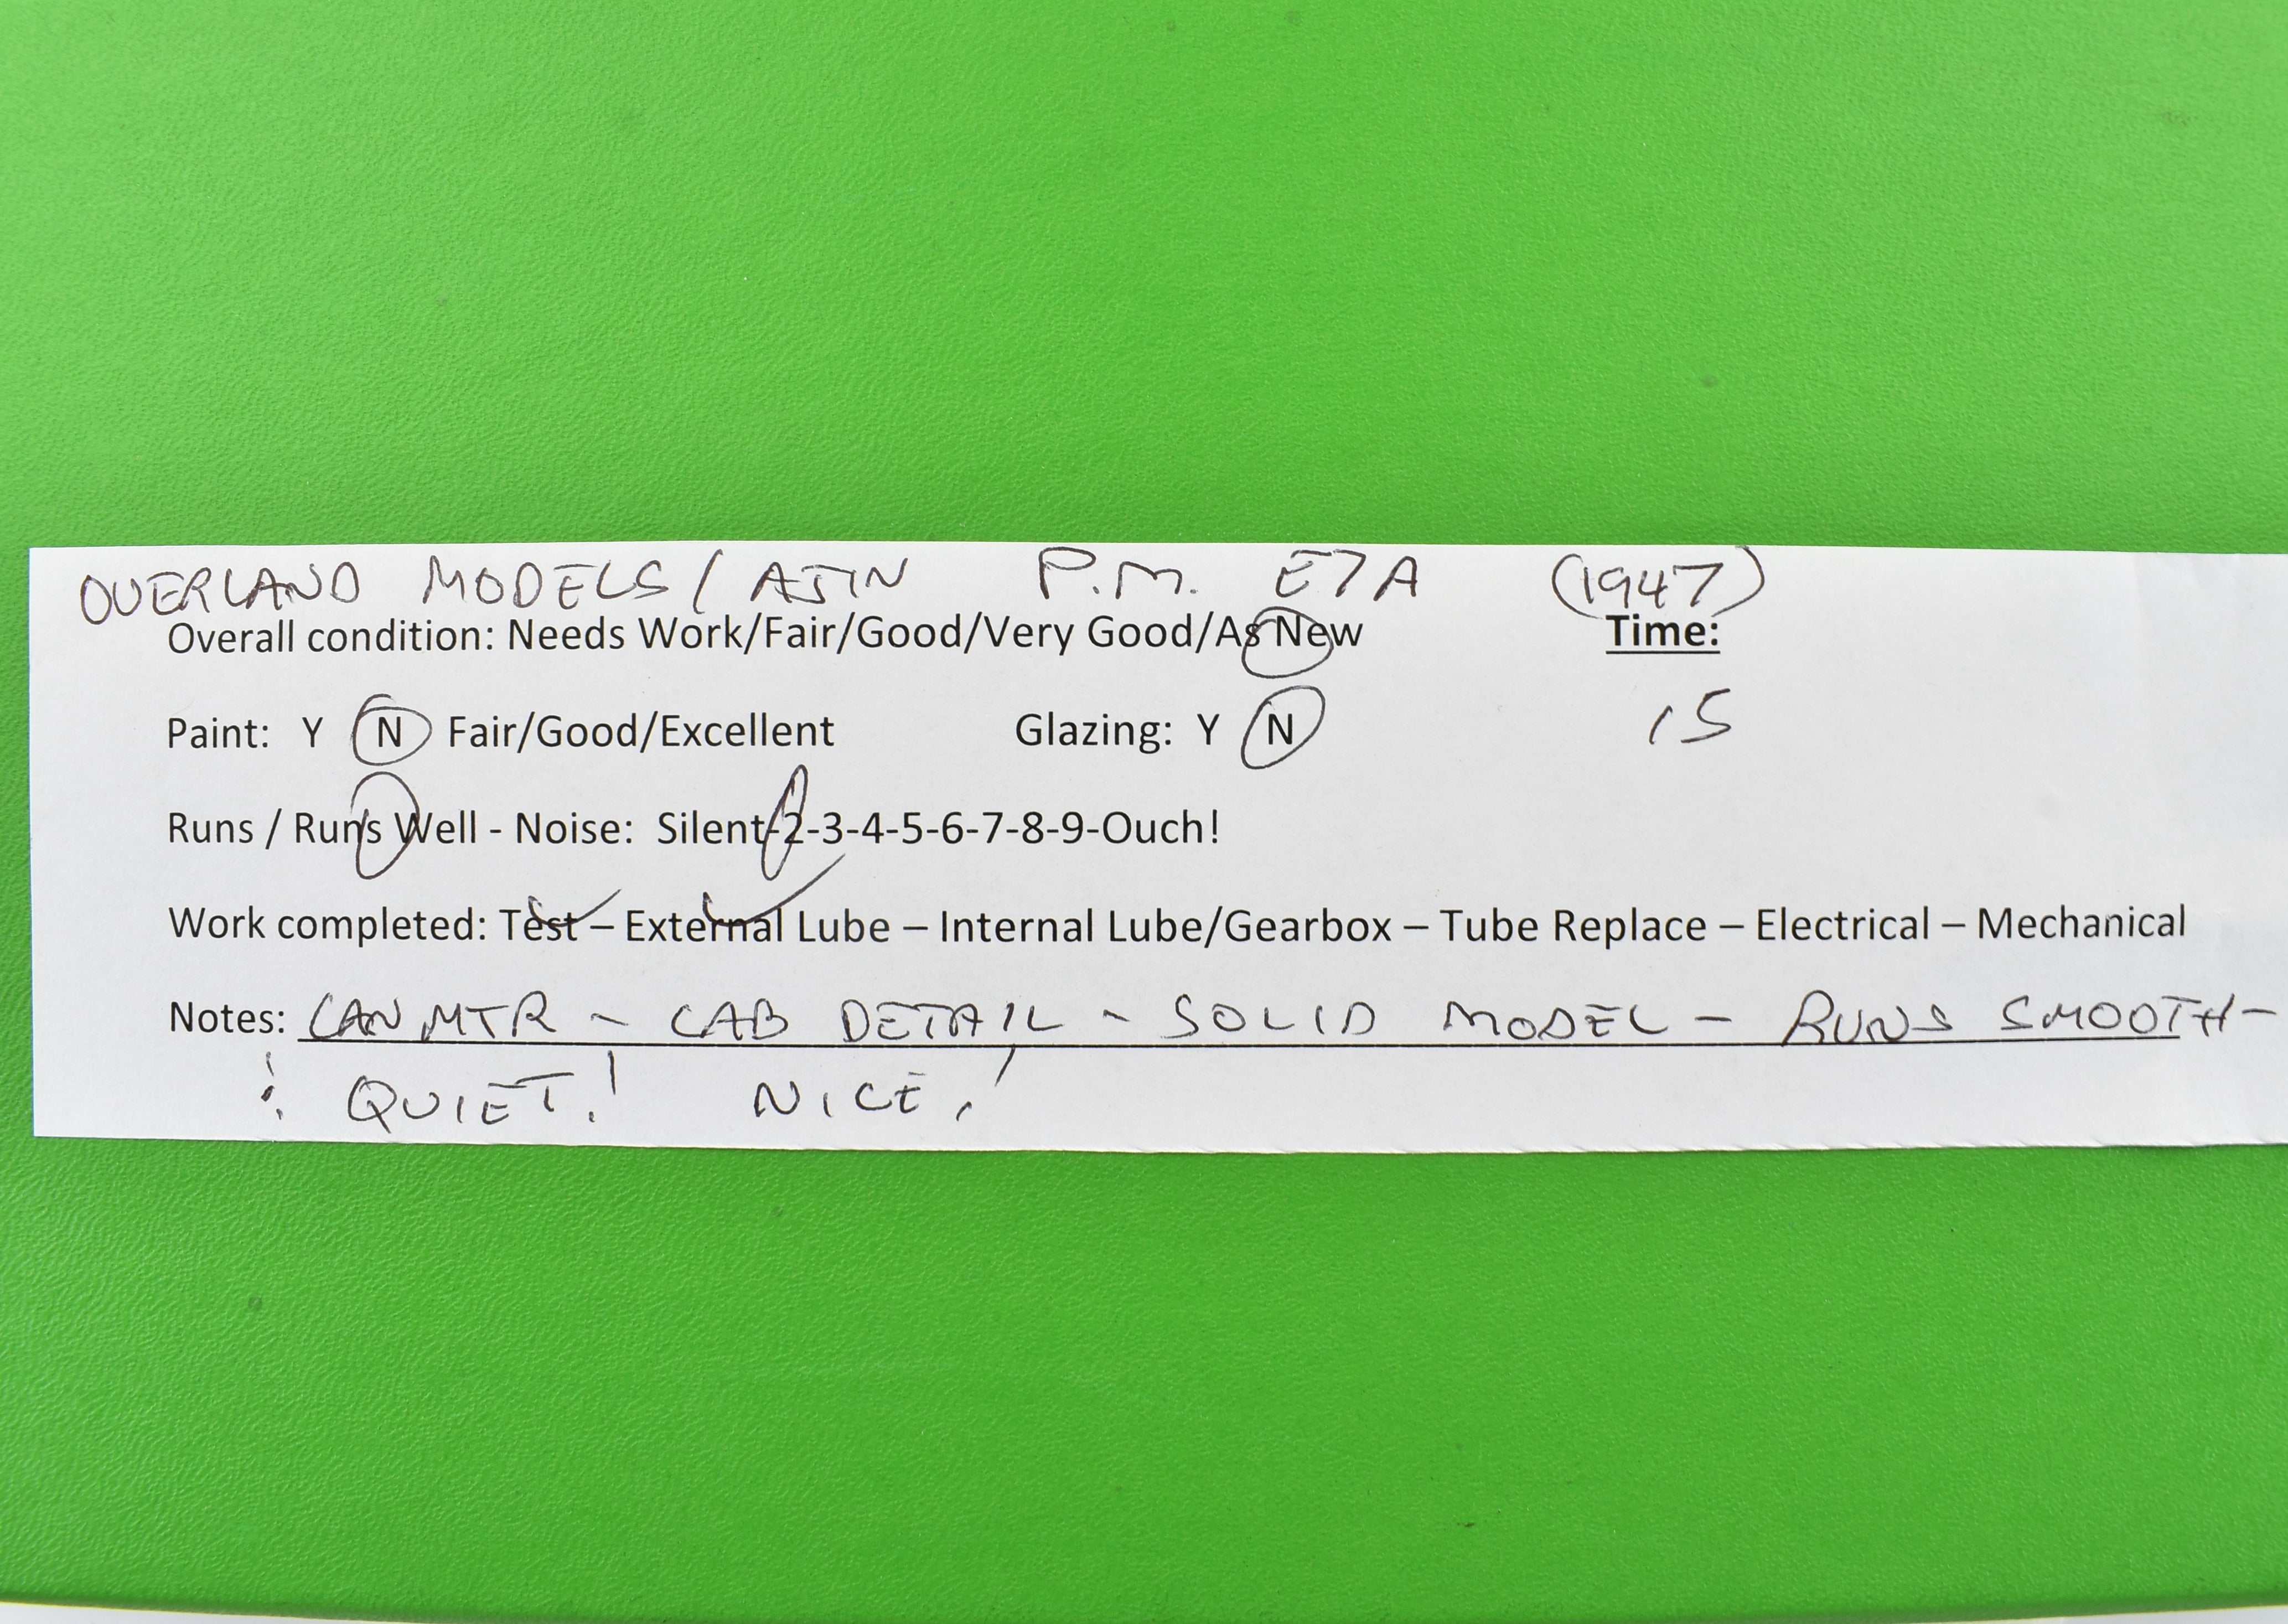 OVERLAND MODELS/AJIN P.M. E7A (1947)
Overall condition: Needs Work/Fair/Good/Very Good/As New Time:
Paint: Y N Fair/Good/Excellent Glazing: Y N 15
Runs / Runs Well - Noise: Silent-2-3-4-5-6-7-8-9-Ouch!
Work completed: Test – External Lube – Internal Lube/Gearbox – Tube Replace – Electrical – Mechanical
Notes: CAN MTR - CAB DETAIL - SOLID MODEL - RUNS SMOOTH-
! QUIET! NICE!